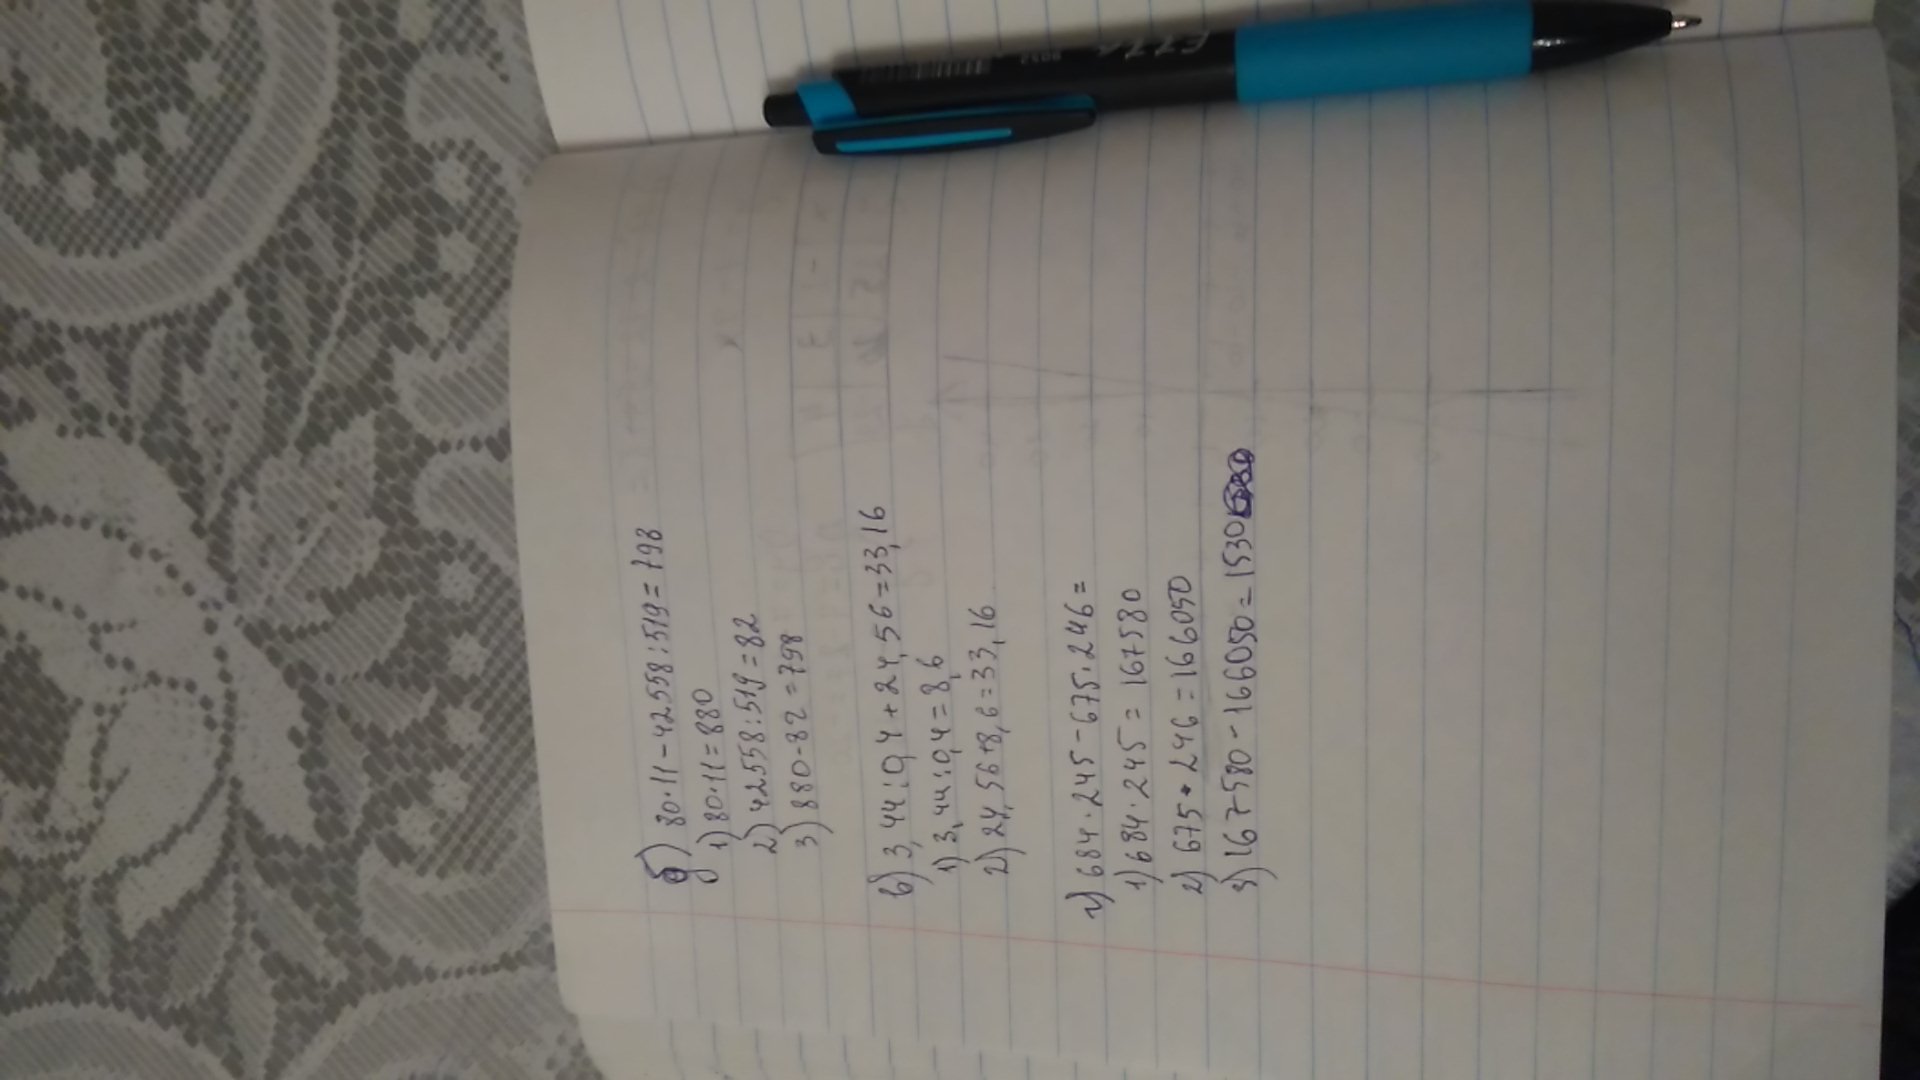 б) 80·11-42558:519=798
1) 80·11=880
2) 42558:519=82
3) 880-82=798
в) 3,44:0,4+24,56=33,16
1) 3,44:0,4=8,6
2) 24,56+8,6=33,16
г) 684·245-675·246=
1) 684·245=167580
2) 675·246=166050
3) 167580-166050=1530